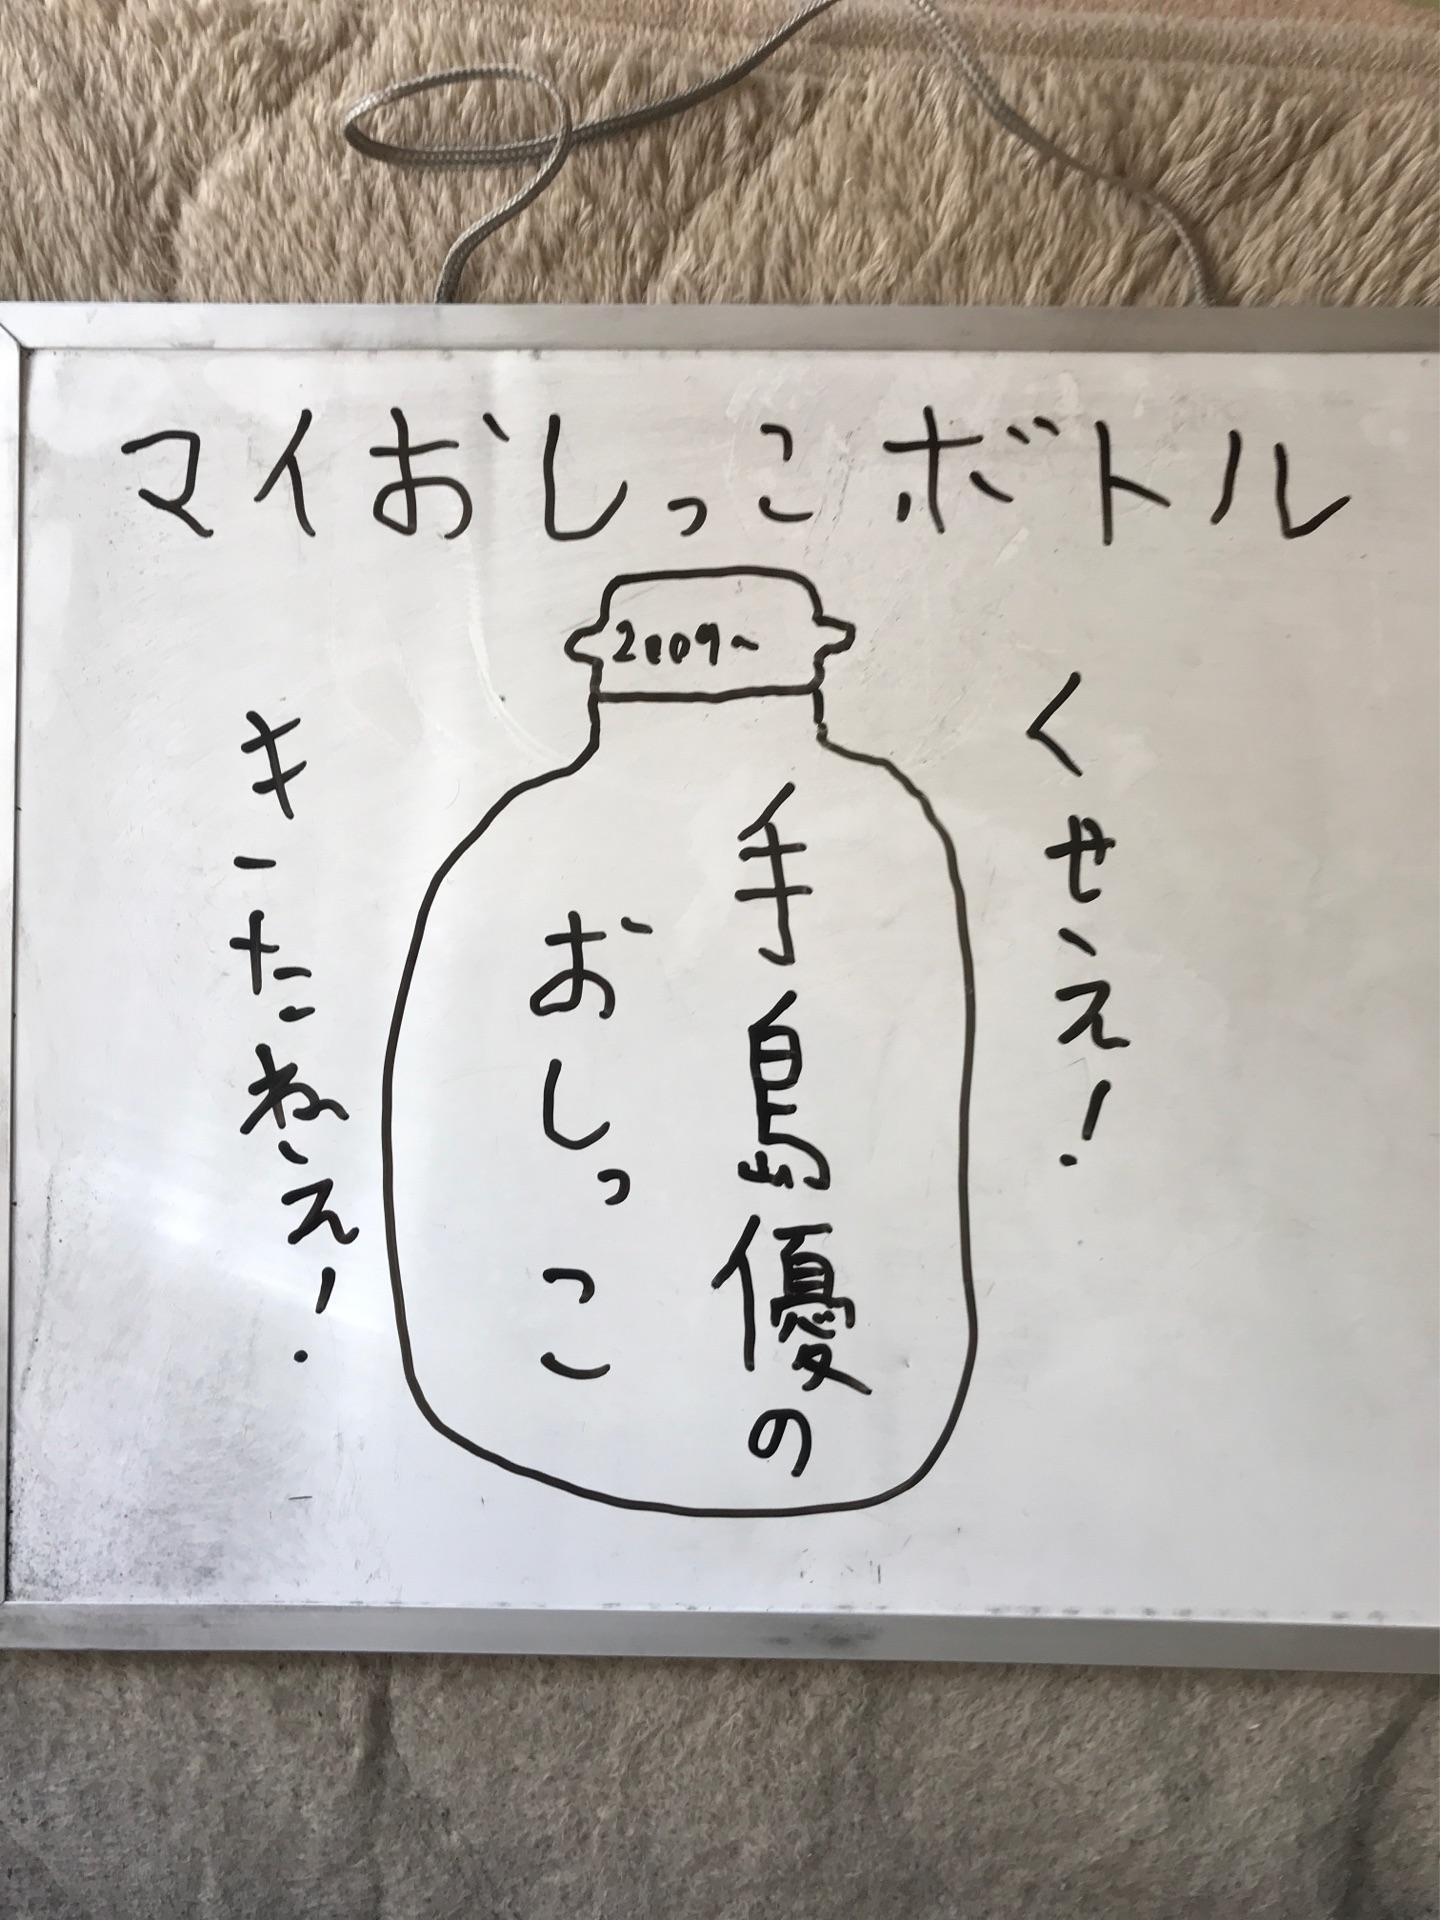 マイおしっこボトル
2009~
くせぇえ!
手島優の
おしっこ
きったねぇえ!